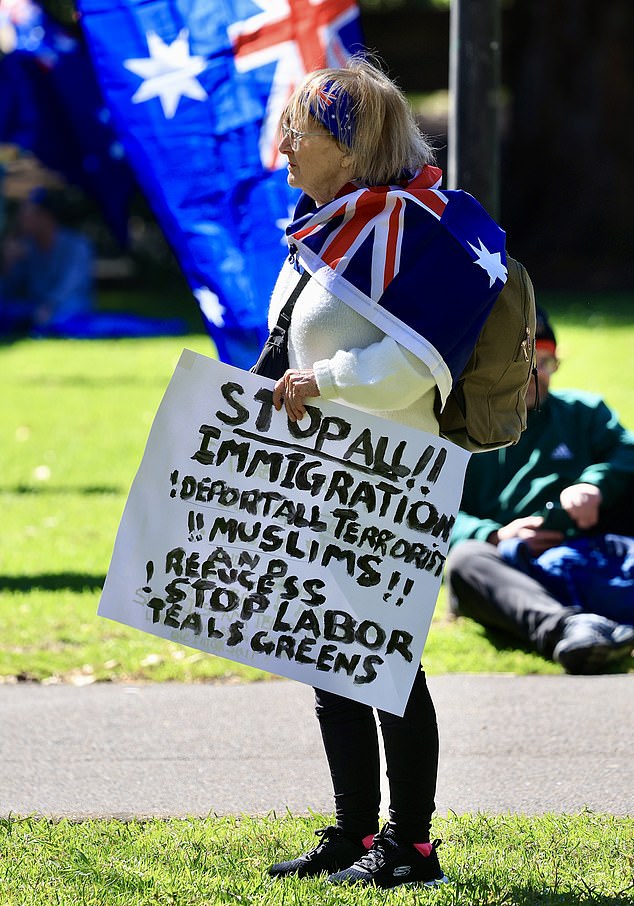 STOP ALL!!
IMMIGRATION
!DEPORT ALL TERRORIST
!! MUSLIMS!!
AND
REFUGESS
! STOP LABOR
TEALS GREENS
adidas
SKECHERS